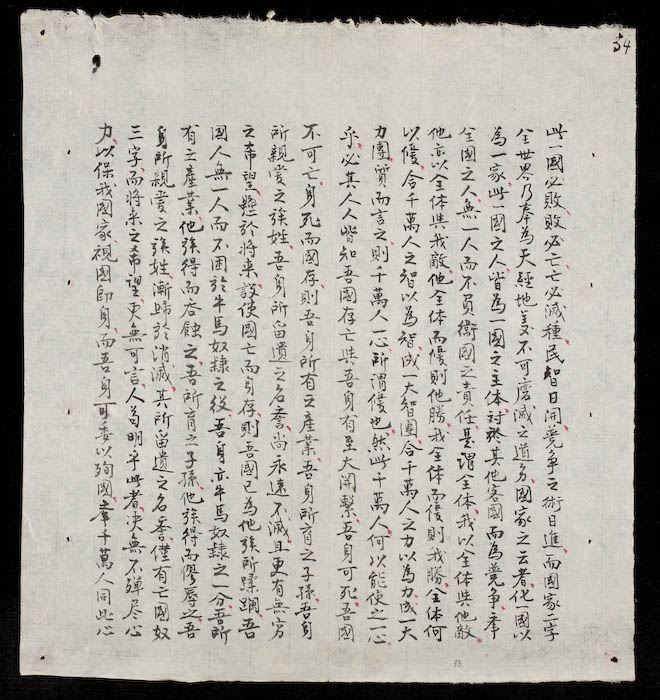 34
此一國必敗敗必亡亡必滅種民智日開競爭之術日進而國家二字
全世界乃奉為天經地義不可磨滅之道夯國家之云者化一國以
為一家此一國之人皆為一國之主体対於其他客國而為競爭牽
全國之人無一人而不負衛國之責任是謂全体我以全体與他敵
他亦以全体與我敵他全体而優則他勝我全体而優則我勝全体何
以優合千萬人之智以為智成一大智團合千萬人之力以為力成一大
力團質而言之則千萬人一心所謂優也然此千萬人何以能使之一心
乎必其人人皆知吾國存亡與吾身有至大関繫吾身可死吾國
不可亡身死而國存則吾身所有之產業吾身所育之子孫吾身
所親愛之族姓吾身所留遺之名香尚永遠不滅且更有無窮
之希望懸於將来設使國亡而身存則吾國已為他族所蹂躙吾
國人無一人而不困於牛馬奴隷之役吾身亦牛馬奴隷之一分吾所
有之產業他族得而吞蝕之吾所育之子孫他族得而僇辱之吾
身所親愛之族姓漸歸於消滅其所留遺之名香僅有亡國奴
三字而将来之希望更無可言人苟明乎此者决無不殫尽心
力以保我國家視國即身而吾身可委以殉國牽千萬人同此心
33